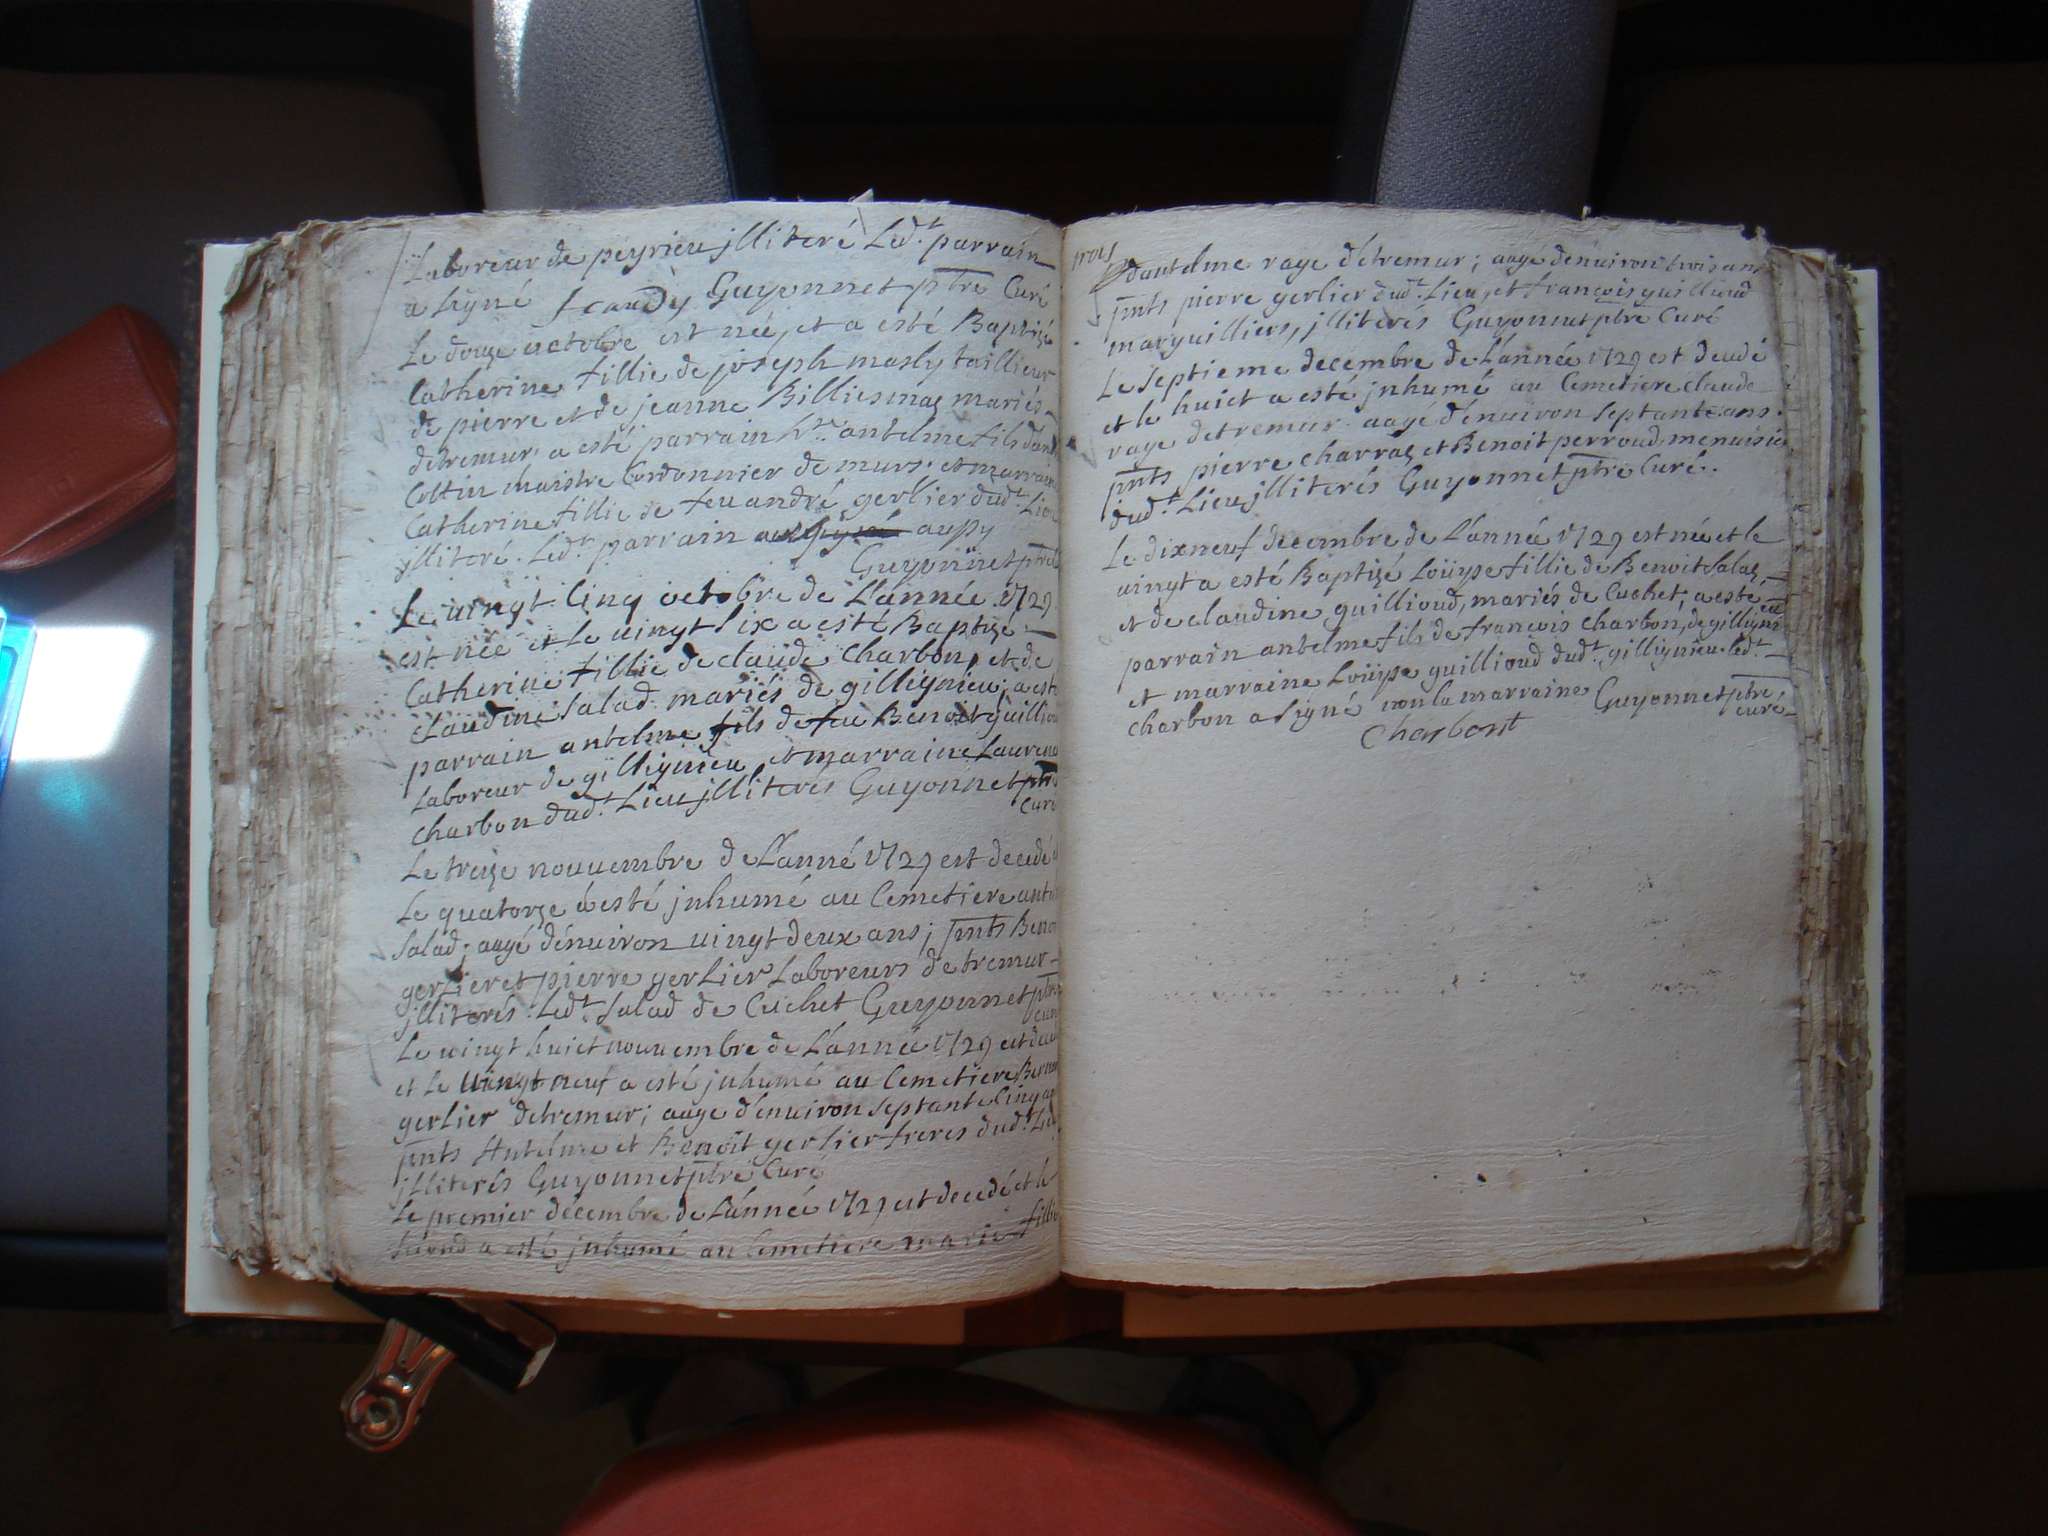 Laboreur de peyrieu jlliteré Led.t parrain
a signé Jcaudy Guyonnet ptre Curé
Le douze octobre est née, et a esté Baptizé
Catherine fillie de joseph masly taillieur
de pierre et de jeanne Billiesmaz mariés
detremur a esté parrain h.te antelme fils dant
Cottin maistre Cordonnier de murs; et marraine
Catherine fillie de feu andré gerlier dud.t Lieu
jlliteré. Led.t parrain aupy
Guyonnet ptre
Le uingt Cinq octobre de L'année 1729
est née et Le uingt six a esté Baptizé
Catherine fillie de claude Charbon, et de
claudine Salad mariés de gillignieu; a esté
parrain antelme fils de feu Benoit guilliou
Laboreur de gillignieu et marraine Laurence
Charbon dud.t Lieu jlliterés Guyonnet ptre
Curé
Le treize nouuembre de L'anné 1729 est decedé
Le quatorze a esté jnhumé au Cemetiere ant
Salad; aagé d'enuiron uingt deux ans; pnts Beno
gerlier et pierre gerlier Laboreurs de tremur
jlliterés. Led.t Salad de Cuchet Guyonnet ptre
Curé
Le uingt huict nouuembre de L'année 1729 est dece
et Le uingt neuf a esté jnhumé au Cemetiere Beno
gerlier detremur; aage d'enuiron septante Cinq a
pnts Antelme et Benoit gerlier freres dud.t Lieu
jlliterés Guyonnet ptre Curé
Le premier décembre de L'année 1729 est decedé et le
second a esté jnhumé au Cemetiere marie fillie
trois
dantelme rage détremur; aagé d'énuiron trois ans
pnts pierre gerlier dud.t Lieu, et francois guillioud
marguilliers, jlliterés Guyonnet ptre Curé
Le Septieme decembre de L'année 1729 est decedé
et le huict a esté jnhumé au Cemetiere claude
rage detremur aagé d'énuiron Septante ans
pnts pierre charraz et Benoit perroud menuisie
dud.t Lieu jlliterés Guyonnet ptre Curé.
Le dixneuf decembre de L'année 1729 est née et le
uingt a esté Baptizé Loüyse fillie de Benoit Salaz
et de claudine guillioud, mariés de Cuchet; a esté
parrain antelme fils de francois charbon, de gillignieu
et marraine Loüyse guillioud dud.t gillignieu. Led.t
Charbon a signé non la marraine Guyonnet ptre
curé
Charbont